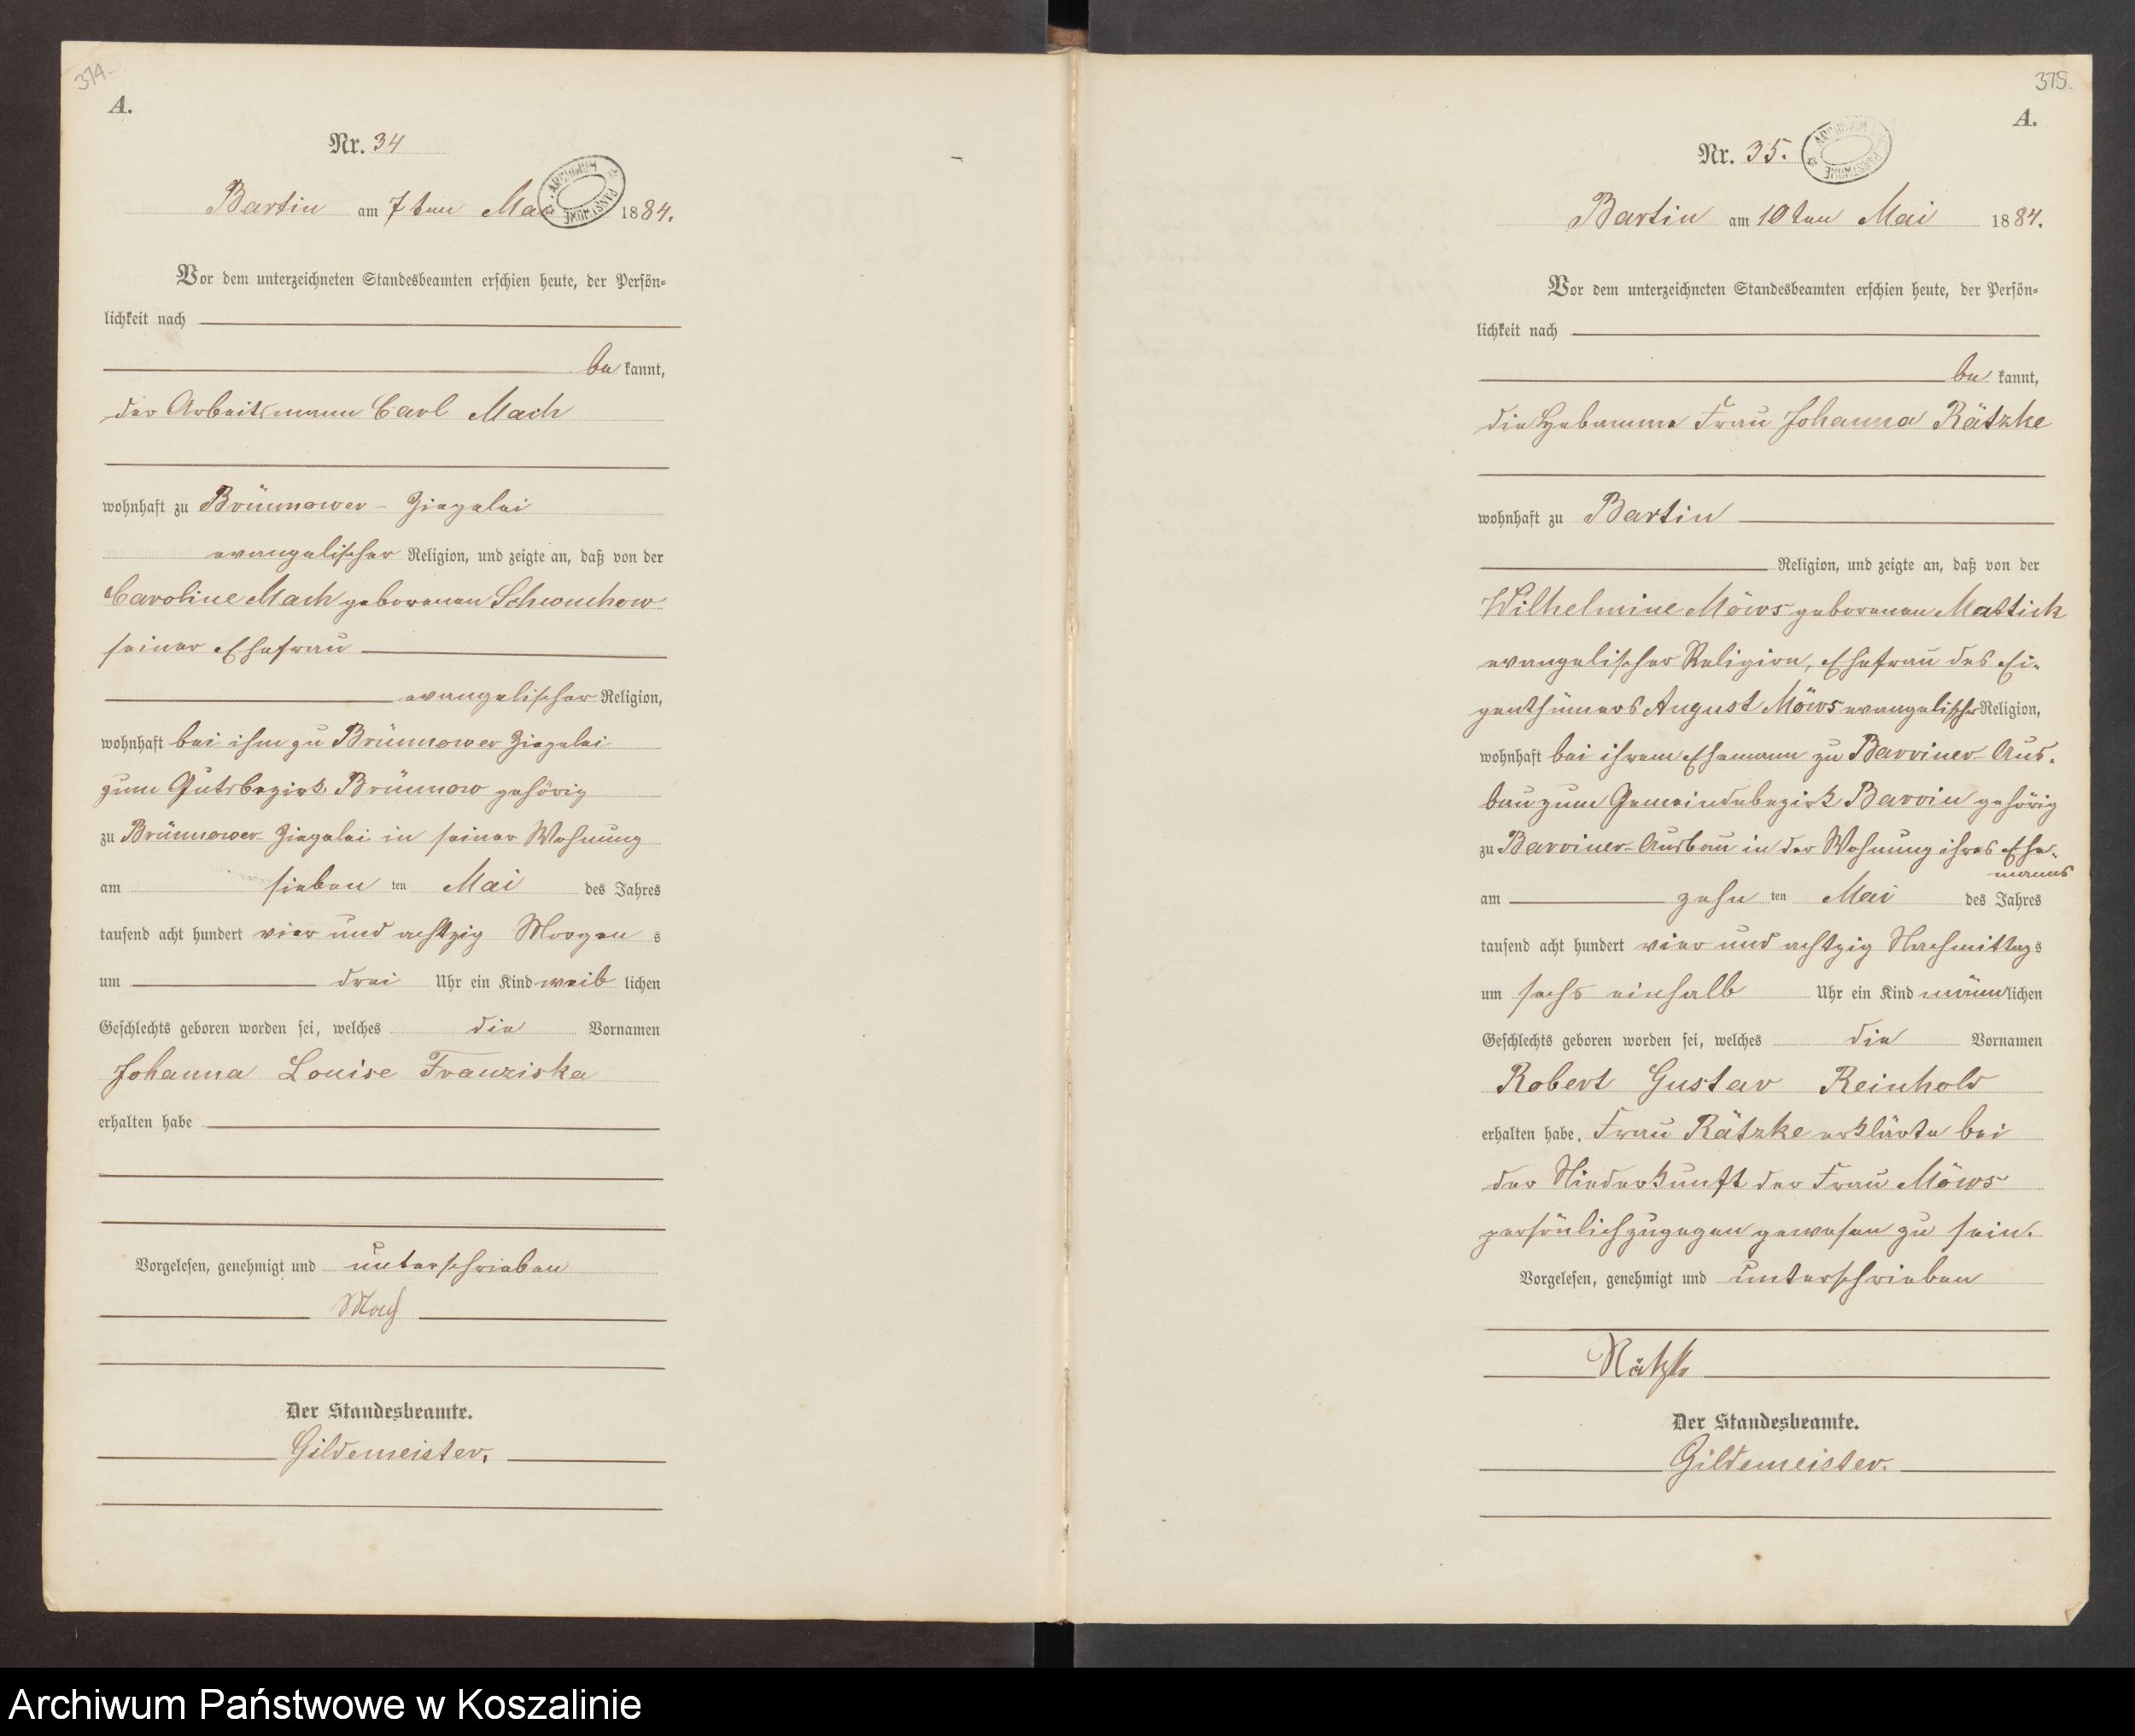 374
A.
Nr. 34
Bartin am 7ten Mai 1884.
Vor dem unterzeichneten Standesbeamten erschien heute, der Persön=
lichkeit nach
be kannt,
der Arbeitsmann Carl Mach
wohnhaft zu Brünnower - Ziegelei
evangelischer Religion, und zeigte an, daß von der
Caroline Mach geborenen Schwuchow
seiner Ehefrau
evangelischer Religion,
wohnhaft bei ihm zu Brünnower Ziegelei
zum Gutsbezirk Brünnow gehörig
zu Brünnower-Ziegelei in seiner Wohnung
am sieben ten Mai des Jahres
tausend acht hundert vier und achtzig Morgen s
um drei Uhr ein Kind weib lichen
Geschlechts geboren worden sei, welches die Vornamen
Johanna Louise Franziska
erhalten habe
Vorgelesen, genehmigt und unterschrieben
Mach
Der Standesbeamte.
Gildemeister.
375.
A.
Nr. 35.
ARCHIWUM PAŃSTWOWE
Bartin am 10ten Mai 1884.
Vor dem unterzeichneten Standesbeamten erschien heute, der Persön=
lichkeit nach
be kannt,
die Hebamme Frau Johanna Rätzke
wohnhaft zu Bartin
Religion, und zeigte an, daß von der
Wilhelmine Möws geborenen Mastick
evangelischer Religion, Ehefrau des Ei-
genthümers August Möws evangelischer Religion,
wohnhaft bei ihrem Ehemann zu Barviner Aus-
bau zum Gemeindebezirk Barvin gehörig
zu Barviner-Ausbau in der Wohnung ihres Ehe-
manns
am zehn ten Mai des Jahres
tausend acht hundert vier und achtzig Nachmittag s
um sechs einhalb Uhr ein Kind männ lichen
Geschlechts geboren worden sei, welches die Vornamen
Robert Gustav Reinhold
erhalten habe. Frau Rätzke erklärte bei
der Niederkunft der Frau Möws
persönlich zugegen gewesen zu sein.
Vorgelesen, genehmigt und unterschrieben
Rätzke
Der Standesbeamte.
Gildemeister.
Archiwum Państwowe w Koszalinie